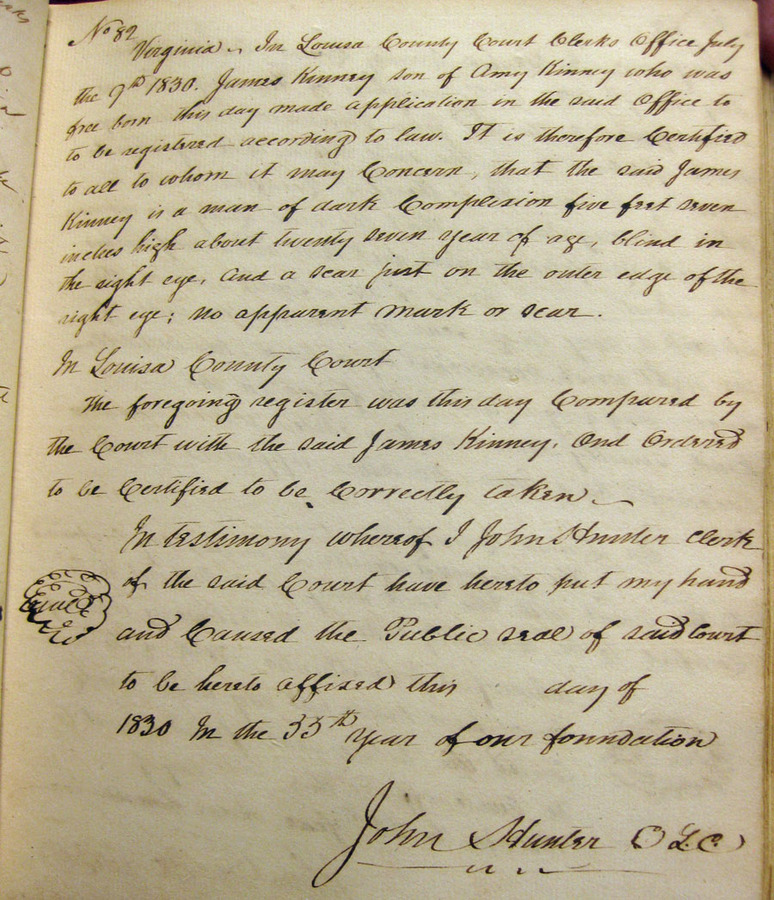 No 82
Virginia. In Louisa County Court Clerks Office July
the 9th 1830. James Kinney son of Amy Kinney who was
free born this day made application in the said Office to
to be registered according to law. It is therefore Certified
to all to whom it may Concern, that the said James
Kinney is a man of dark Complexion five feet seven
inches high about twenty seven year of age, blind in
the right eye, and a scar just on the outer edge of the
right eye; no apparent mark or scar.
In Louisa County Court
The foregoing register was this day Compared by
the Court with the said James Kinney. And Ordered
to be Certified to be Correctly taken
In testimony whereof I John Hunter Clerk
of the said Court have hereto put my hand
and Caused the Public seal of said Court
to be hereto affixed this day of
1830 In the 55th year of our foundation
John Hunter C L C